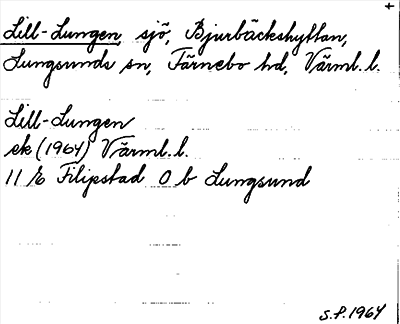 +
Lill-Lungen, sjö, Bjurbäckshyttan,
Lungsunds sn, Färnebo hd, Värml. l.
Lill-Lungen
ek (1964) Värml. l.
11 E Filipstad 0 b Lungsund
S.F. 1964